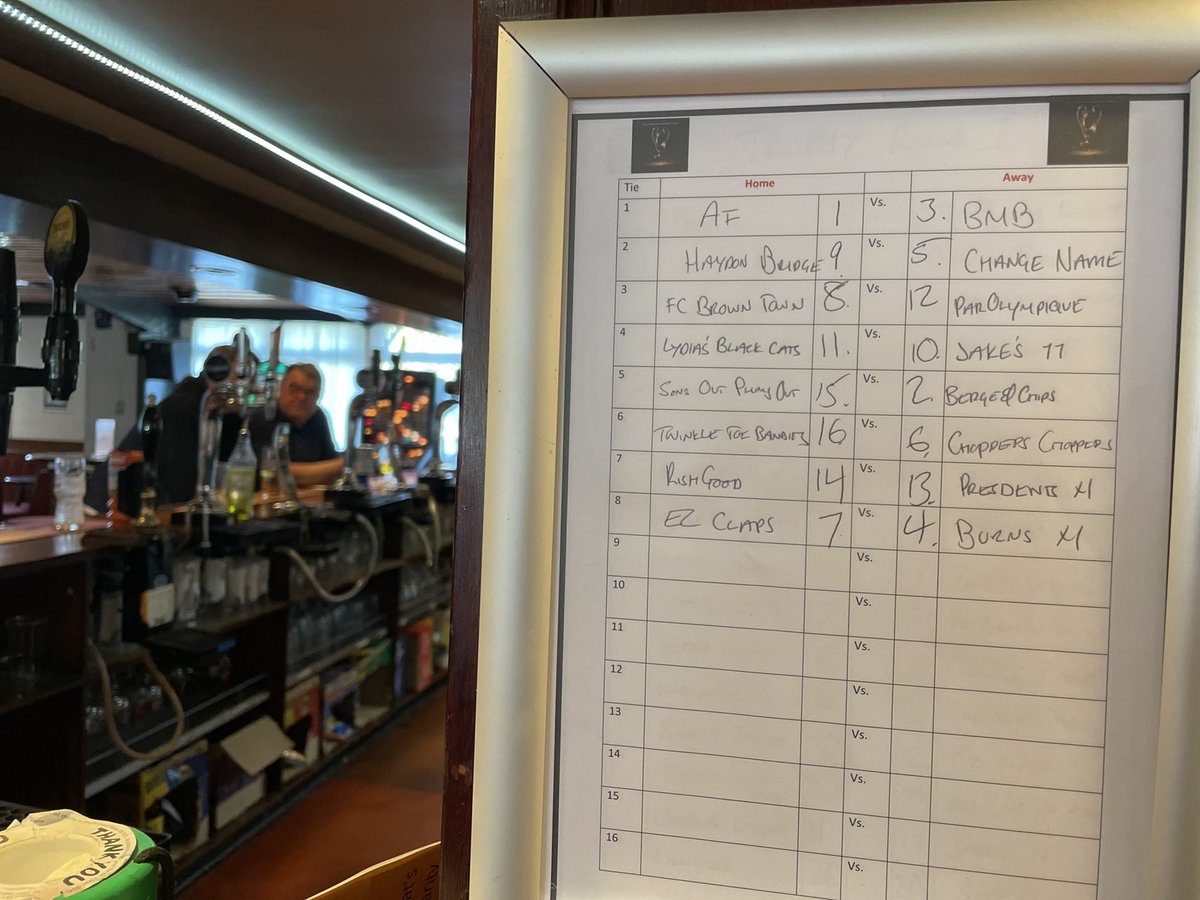 Tie Home Away
1 AF 1 Vs. 3. BMB
2 HAYDON BRIDGE 9. Vs. 5. CHANGE NAME
3 FC BROWN TOWN 8. Vs. 12 PAROLYMPIQUE
4 LYDIA'S BLACK CATS 11. Vs. 10. JAKE'S 11
5 SONS OUT PLUMS OUT 15. Vs. 2. BERGE & CHIPS
6 TWINKLE TOE BANDITS 16 Vs. 6. CHOPPERS CHOPPERS
7 RISHGOOD 14 Vs. 13. PRESIDENTS XI
8 EZ CLAPS 7. Vs. 4. BURNS XI
9 Vs.
10 Vs.
11 Vs.
12 Vs.
13 Vs.
14 Vs.
15 Vs.
16 Vs.
THANK YOU